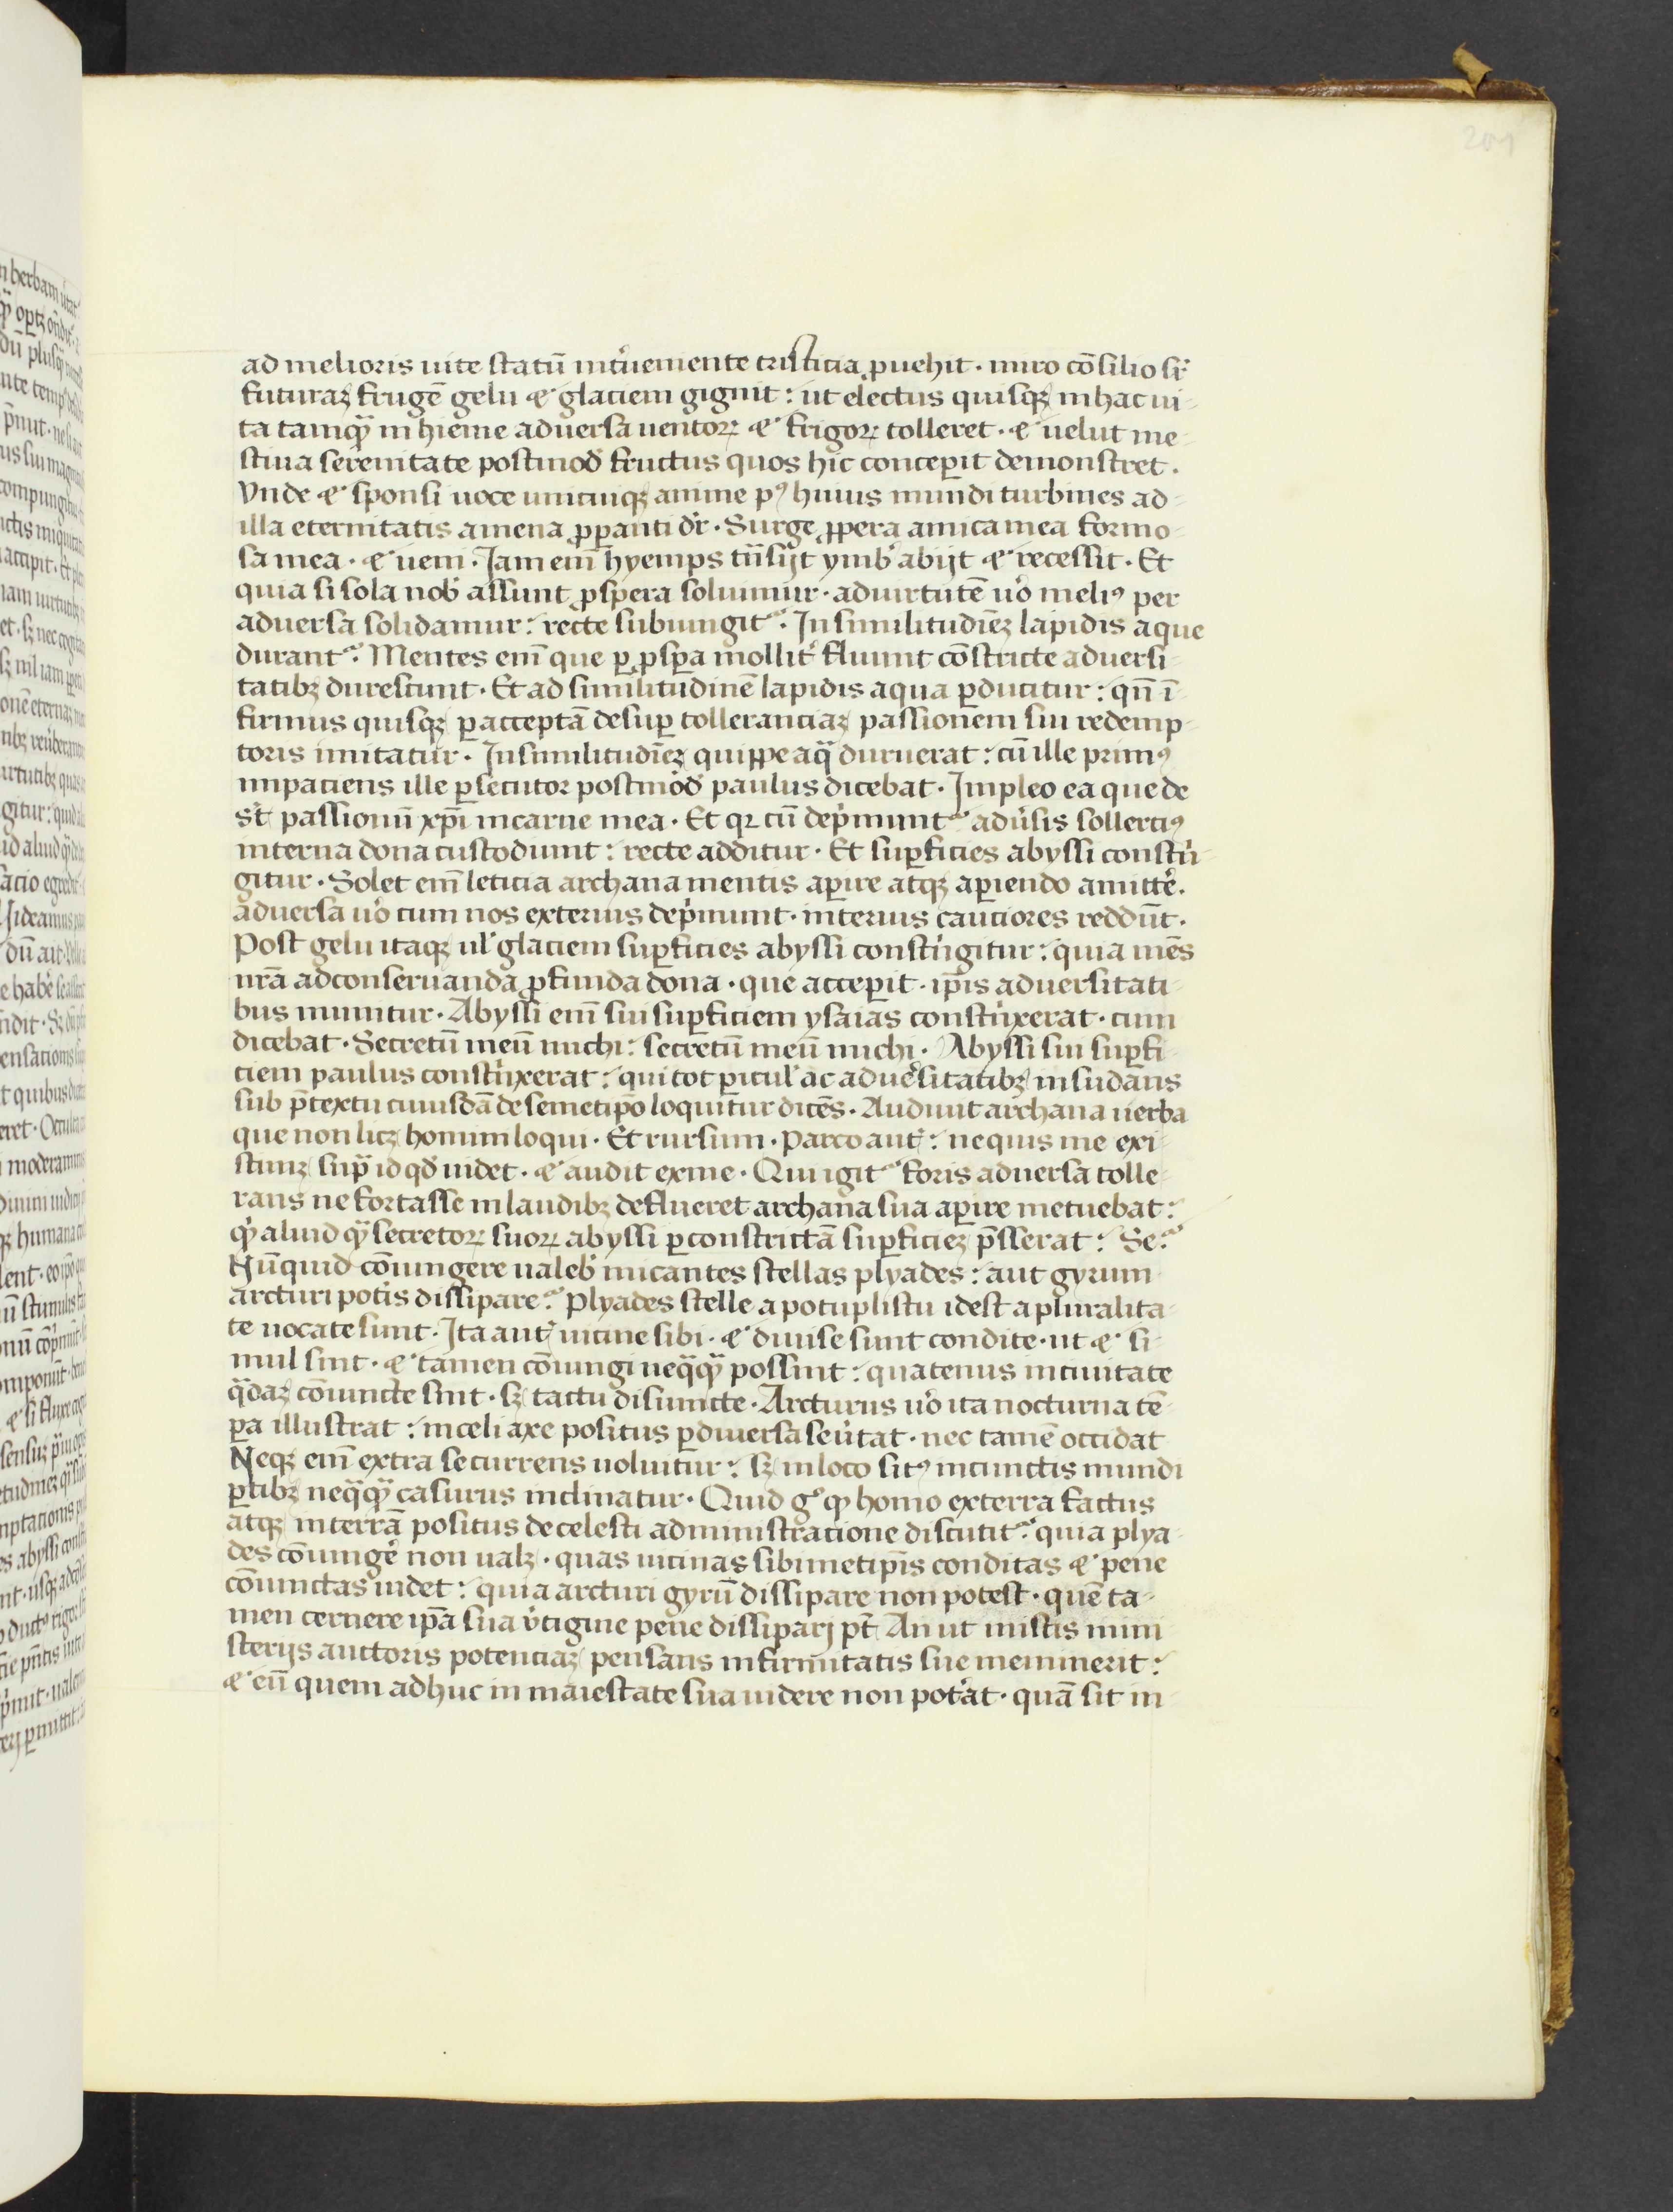 201
ad melioris uite statū intˀuemente tristicia ꝓuehit · miro cōsilio siˀ
futuraꝫ frugē gelu ⁊ glaciem gignit : ut electus quisqꝫ in hac ui-
ta tamqͣꝫ in hieme aduersa uentoꝝ ⁊ frigoꝝ tolleret · ⁊ uelut me-
stiua serenitate postmod̉ fructus quos hic conceperit demonstret .
Vnde ⁊ sponsi uoce unicuiqꝫ anime pꝰ huius mundi turbines ad
illa eternitatis amena ꝓꝑanti dr̄ · Surge ꝓpera amica mea formo-
sa mea · ⁊ ueni · Jam em̄ hyemps tͣnsijt ymbˀ abijt ⁊ recessit · Et
quia si sola nobˀ assunt ꝓspera soluimur · ad uirtutē uˀo meliꝰ per
aduersa solidamur : recte subiungitᷣ . In similitudīeꝫ lapidis aque
durantᷣ . Mentes em̄ que ꝑ ꝓspa mollitˀ fluunt cōstricte aduersi-
tatibꝫ durescunt · Et ad similitudinē lapidis aqua ꝑducitur : qn̄ ī-
firmus quisqꝫ ꝑ acceptā desuꝑ tolleranciaꝫ passionem sui redemp-
toris imitatur · In similitudīeꝫ quippe aqͣ duruerat : cū ille primꝰ
impaciens ille ꝑsecutor postmod̉ paulus dicebat · Impleo ea que de
sˀt passionū xp̄i in carne mea · Et qꝛ cū depˀmuntᷣ aduˀsis sollerciꝰ
interna dona custodiunt : recte additur · Et suꝑficies abyssi constˀn-
gitur · Solet em̄ leticia archana mentis aꝑire atqꝫ aꝑiendo amittˀe .
aduersa uˀo cum nos exterius depˀmunt · interius cauciores reddūt .
Post gelu itaqꝫ ulˀ glaciem suꝑficies abyssi constˀngitur : quia mēs
nr̄a ad conseruanda ꝓfunda dona · que acceꝑit · ip̄is aduersitati-
bus munitur · Abyssi em̄ sui suꝑficiem ysaias constˀnxerat · cum
dicebat · Secretū meū michi : secretū meū michi · Abyssi sui suꝑfi-
ciem paulus constˀnxerat : qui tot ꝑiculˀ ac aduersitatibꝫ insudans
sub p̄textu cuiusdā de semetip̄o loquitur dicēs · Audiuit archana uerba
que non licꝫ homini loqui · Et rursum · parco autˀ : ne quis me exi-
stimꝫ supͣ id qd̄ uidet · ⁊ audit ex me · Qui igitᷣ foris aduersa tolle-
rans ne fortasse in laudibꝫ deflueret archana sua aꝑire metuebat :
qͥd aliud qͣꝫ secretoꝝ suoꝝ abyssi ꝑ constrictā suꝑficieꝫ p̄sserat : Seᷣ .
Nūquid cōiungere ualebˀ micantes stellas plyades : aut gyrum
arcturi potˀis dissipare ᷣ . Plyades stelle apotuplistu id est a pluralita-
te uocate sunt · Ita autˀ uicine sibi · ⁊ diuise sunt condite · ut ⁊ si-
mul sint · ⁊ tamen cōiungi neqͣqͣꝫ possint : quatenus in ciuitate
qͣdaꝫ cōiuncte sint · sꝫ tactu disiuncte · Arcturus uˀo ita nocturna tē-
pa illustrat : in celi axe positus ꝑ diuersa seuˀtat · nec tamē occidat
Neqꝫ em̄ extra se currens uoluitur : sꝫ in loco sitꝰ in cunctis mundi
ꝑtibꝫ neqͣqͣꝫ casurus inclinatur · Quid gͦ qꝙ homo ex terra factus
atqꝫ in terrā positus de celesti administratione discutitᷣ quia plya-
des cōiungˀe non ualꝫ · quas uicinas sibimetip̄is conditas ⁊ pene
cōiunctas uidet : quia arcturi gyrū dissipare non potest · quē ta-
men cernere ip̄a sua uˀtigine pene dissipari pt̄ An ut in istis mini-
sterijs auctoris potenciaꝫ pensans infirmitatis sue meminerit :
⁊ eū quem adhuc in maiestate sua uidere non potˀat · quā sit in-